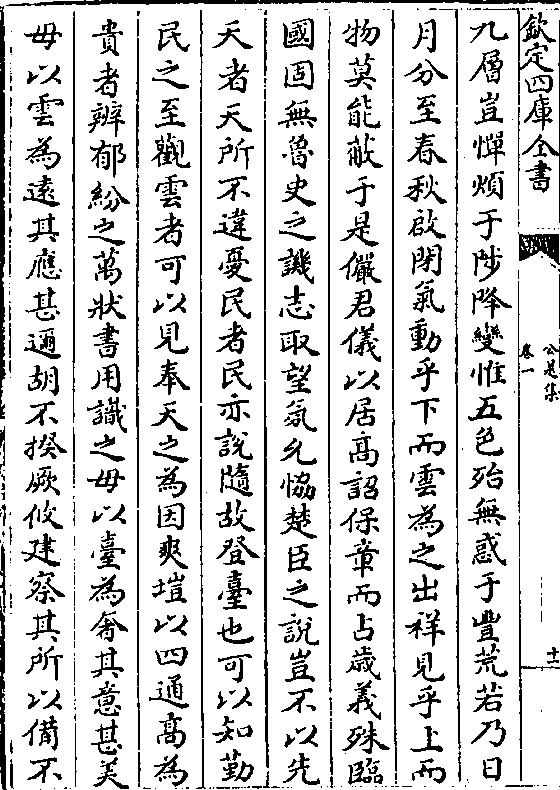 欽定四庫全書
公是集
卷一
十一
九層豈憚煩于陟降變惟五色殆無惑于豐荒若乃日
月分至春秋啟閉氣動乎下而雲為之出祥見乎上而
物莫能蔽于是儼君儀以居高詔保章而占歲義殊臨
國固無魯史之譏志取望氛允恊楚臣之說豈不以先
天者天所不違憂民者民亦說隨故登臺也可以知勤
民之至觀雲者可以見奉天之為因爽塏以四通高為
貴者辨郁紛之萬狀書用識之毋以臺為奢其意甚美
毋以雲為遠其應甚邇胡不揆厥攸建察其所以備不